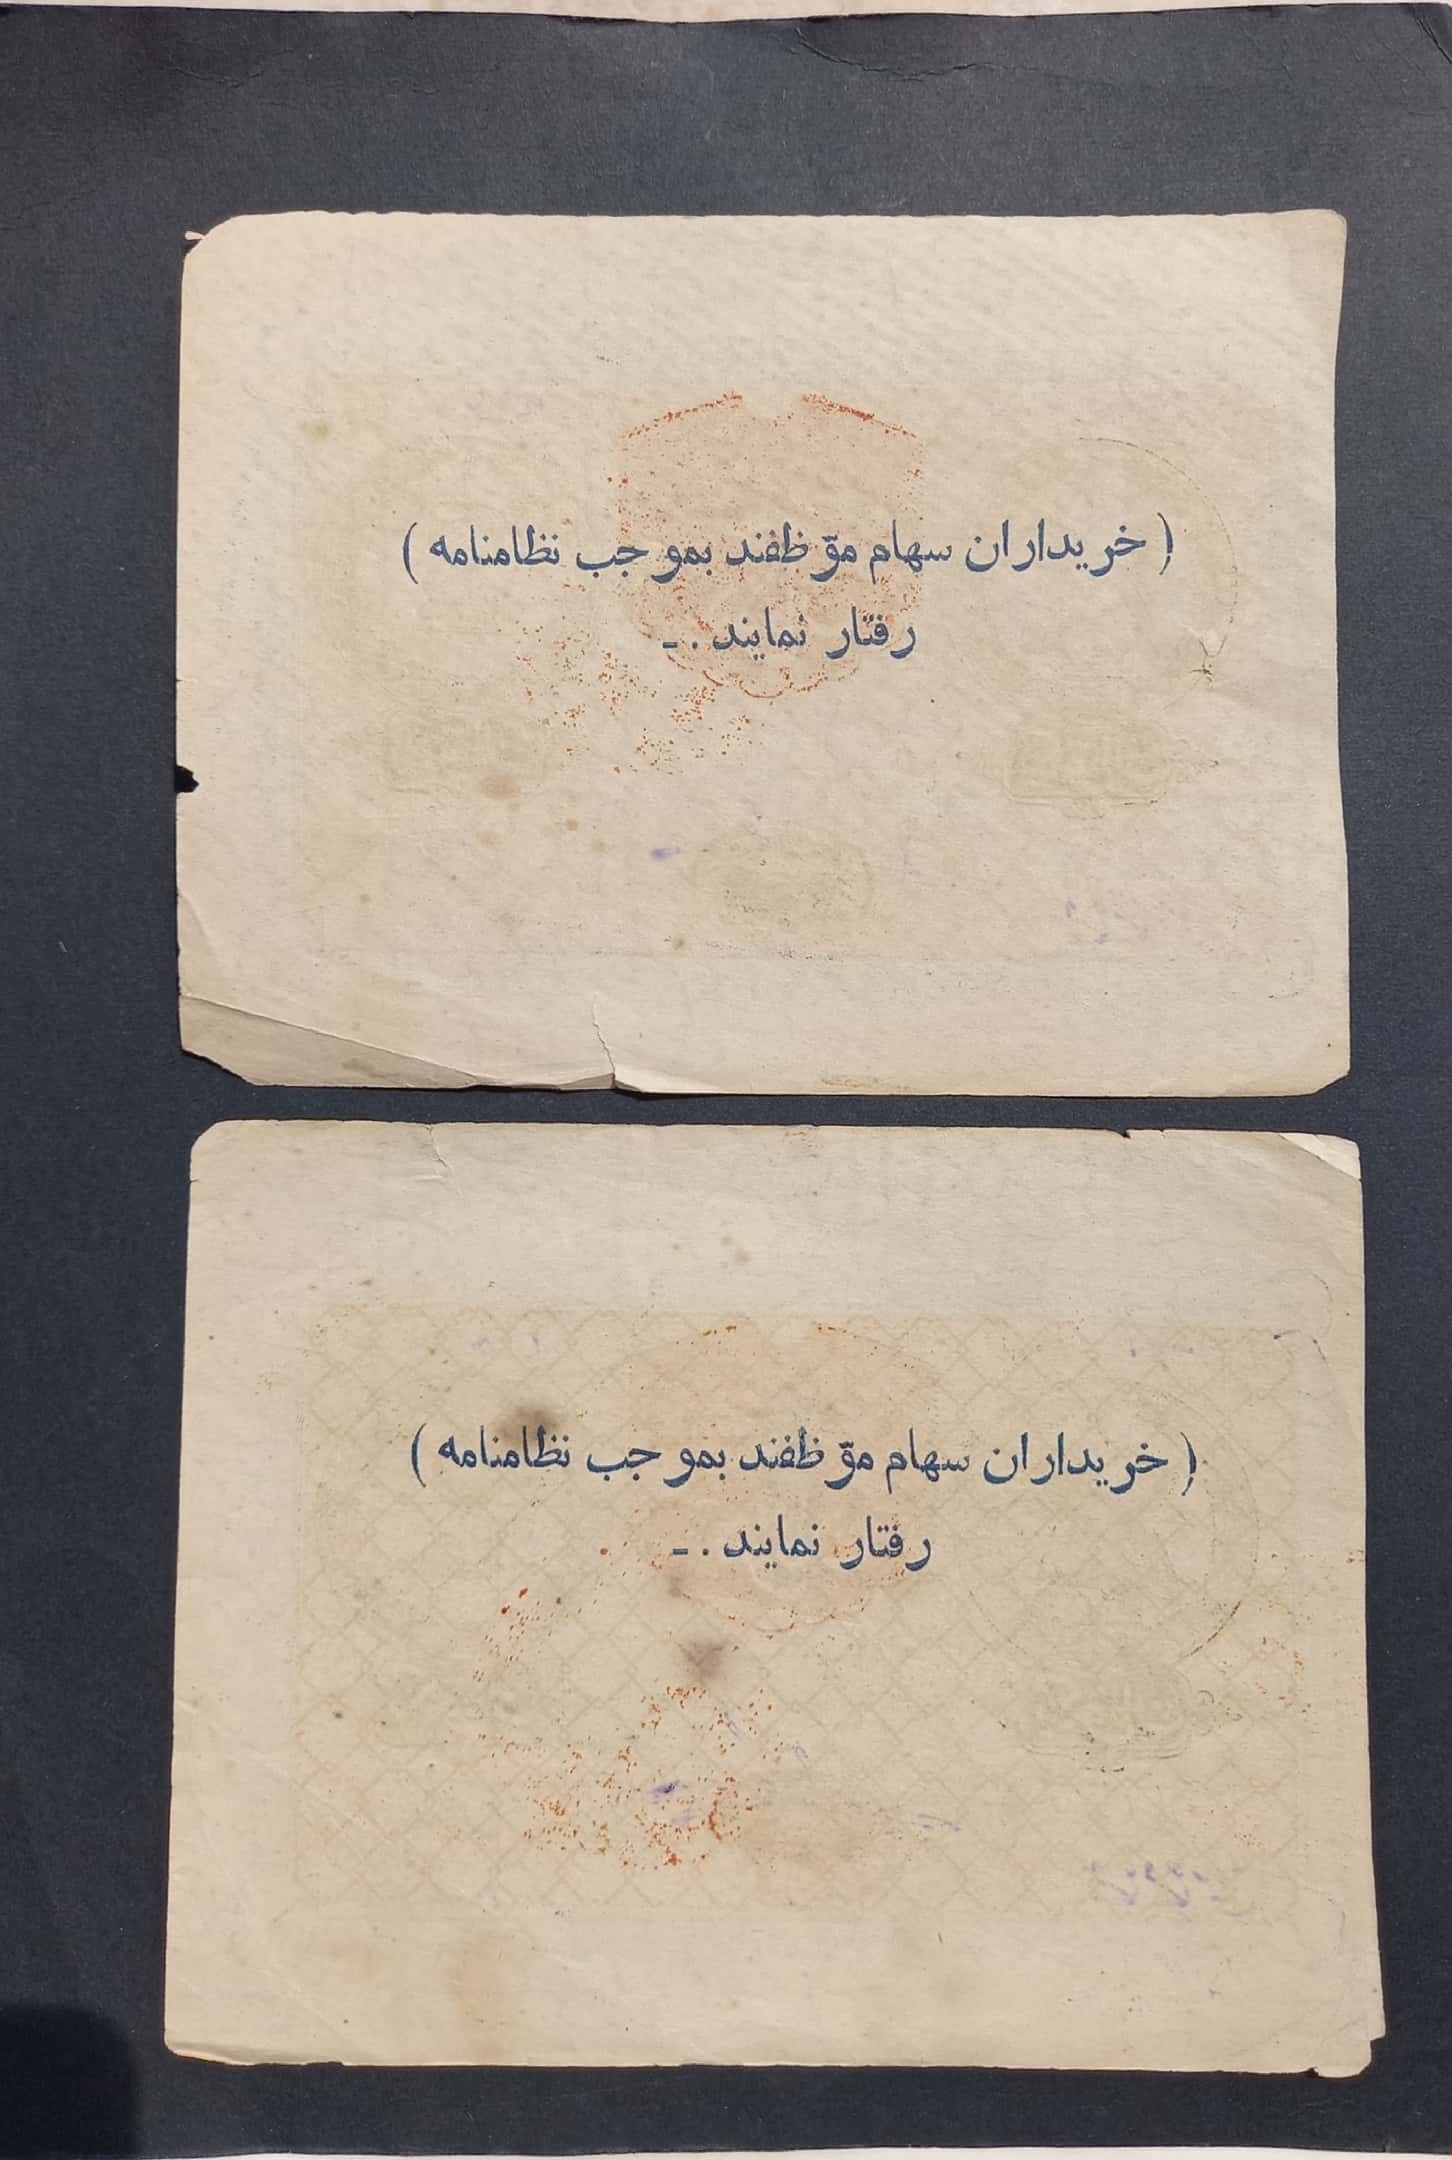 ( خریداران سهام موّظفند بموجب نظامنامه )
رفتار نمایند . ـ
( خریداران سهام موّظفند بموجب نظامنامه )
رفتار نمایند . ـ